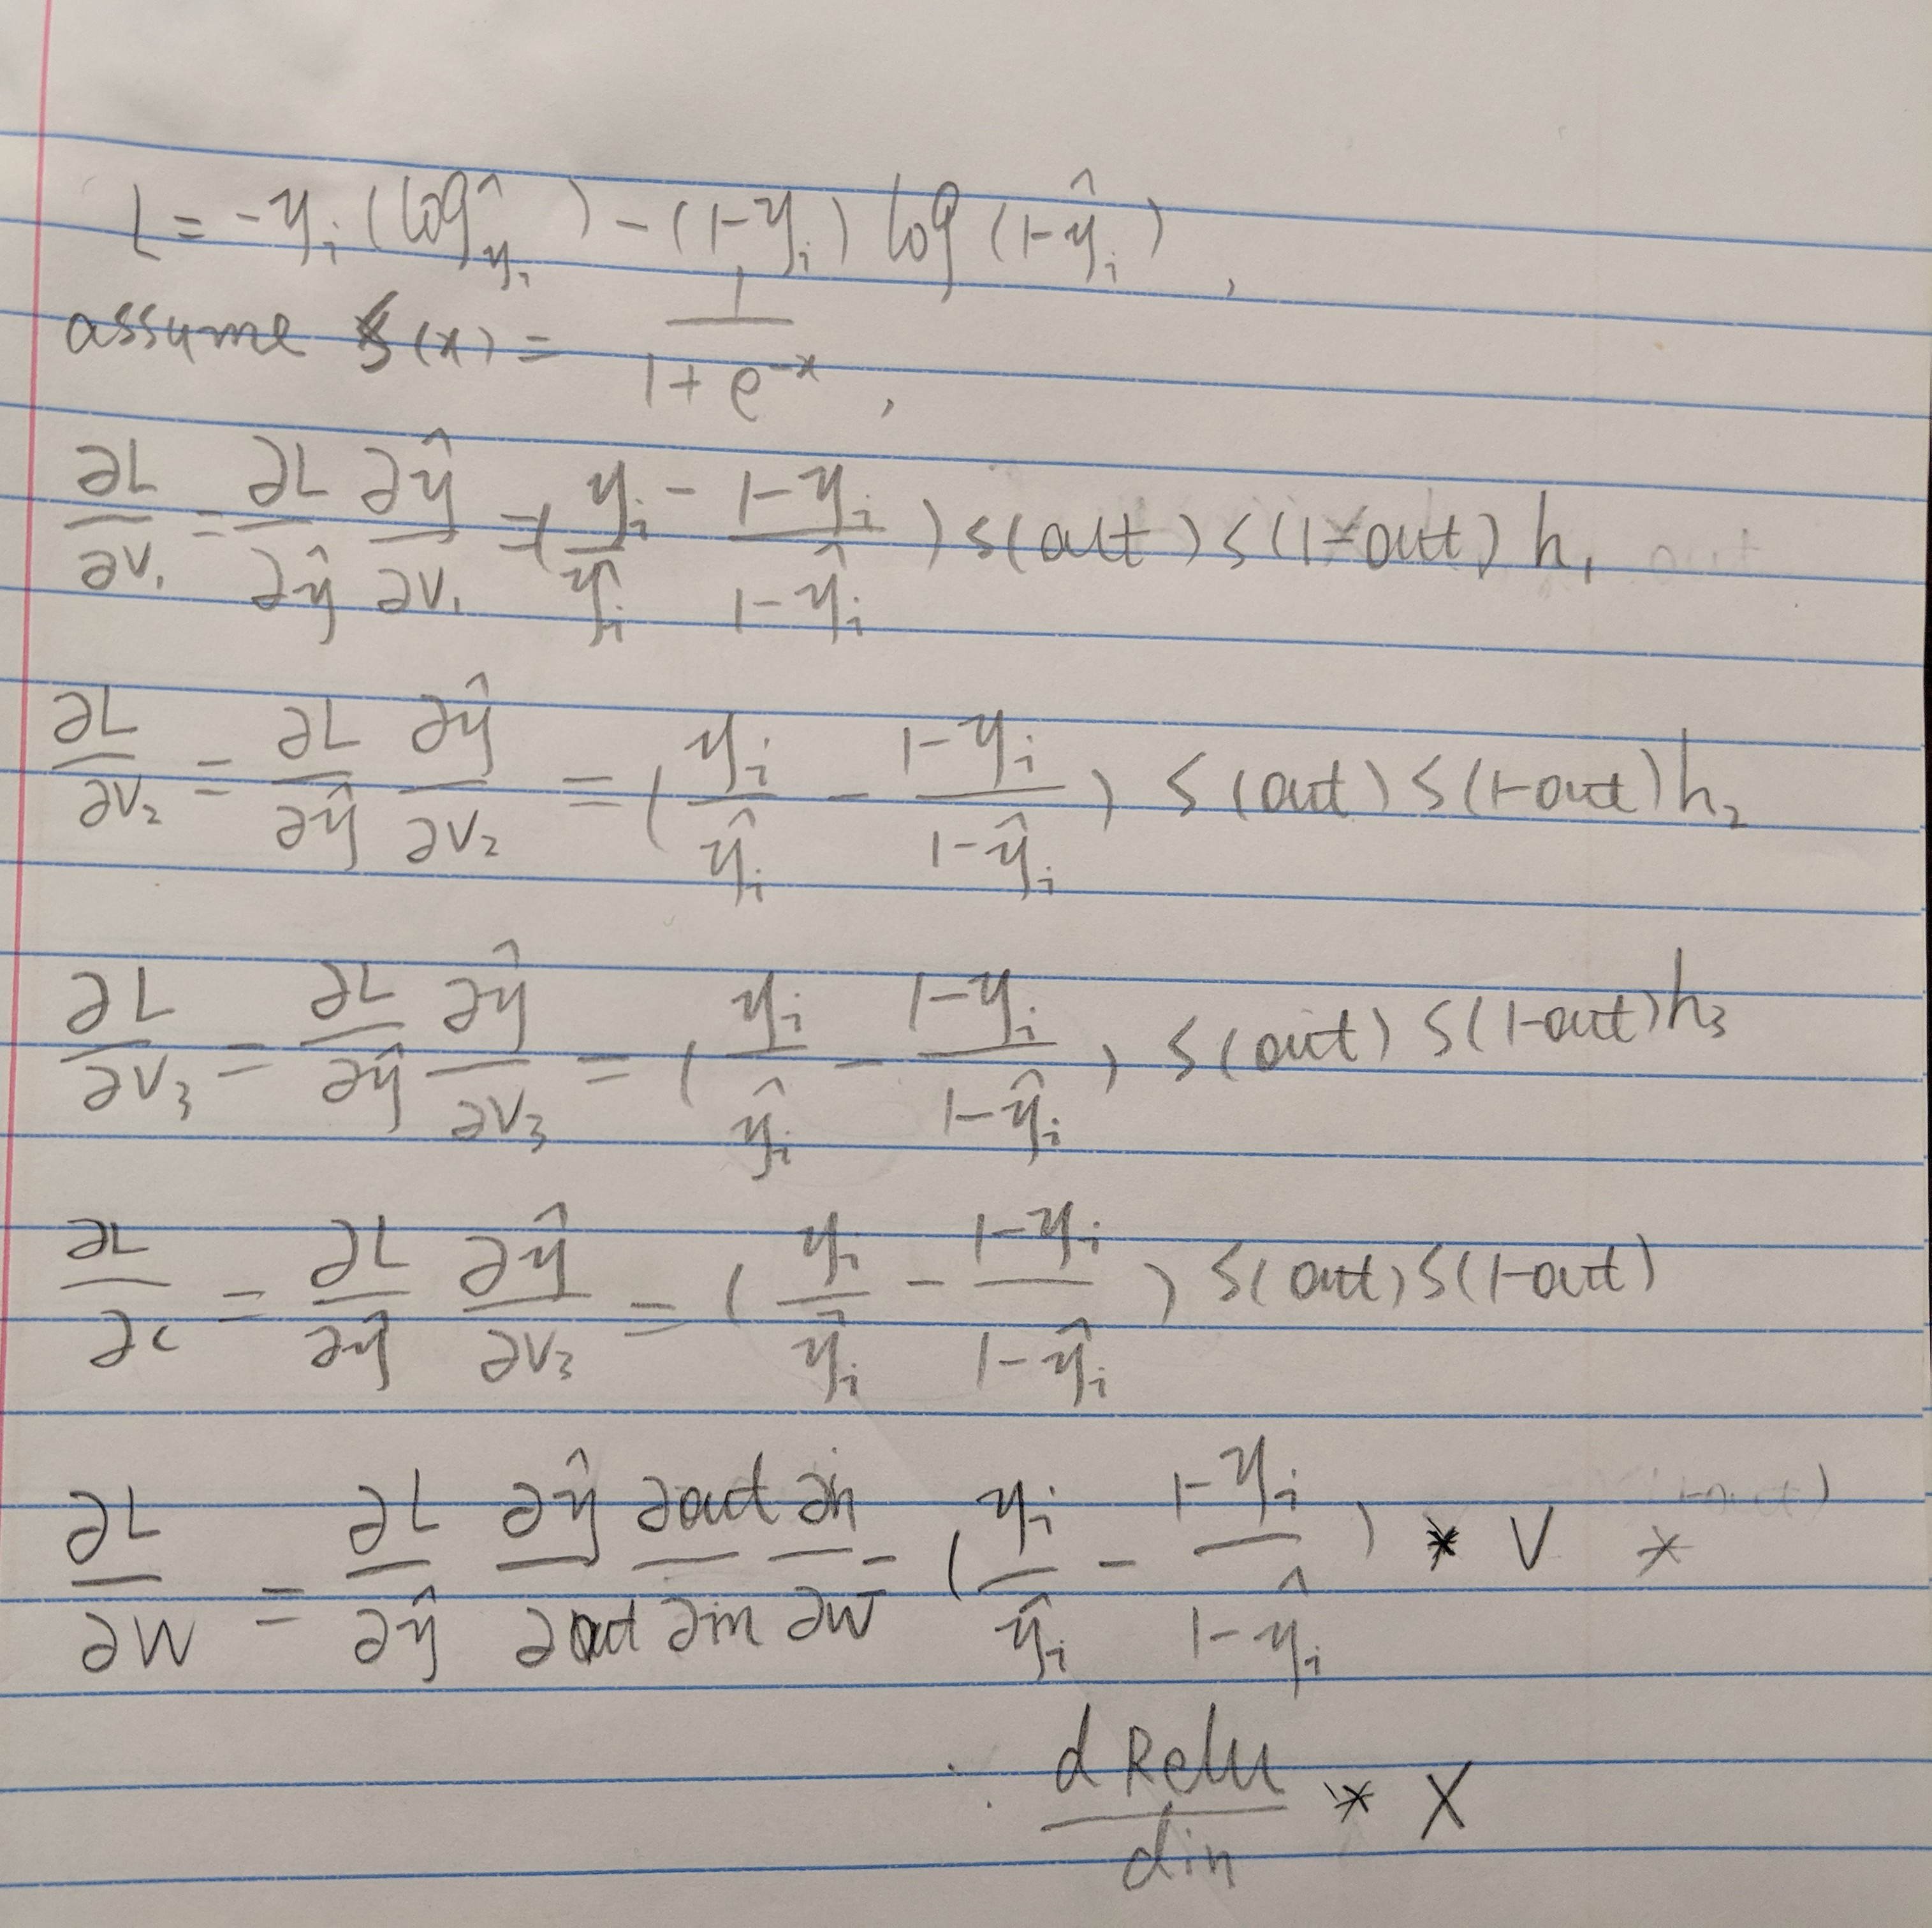 L = -y_i (log ŷ_i) - (1-y_i) log (1-ŷ_i),
assume S(x) = 1/(1+e^{-x}),
∂L/∂V_1 = ∂L/∂ŷ ∂ŷ/∂V_1 = (y_i/ŷ_i - (1-y_i)/(1-ŷ_i)) S(out) S(1-out) h_1
∂L/∂V_2 = ∂L/∂ŷ ∂ŷ/∂V_2 = (y_i/ŷ_i - (1-y_i)/(1-ŷ_i)) S(out) S(1-out) h_2
∂L/∂V_3 = ∂L/∂ŷ ∂ŷ/∂V_3 = (y_i/ŷ_i - (1-y_i)/(1-ŷ_i)) S(out) S(1-out) h_3
∂L/∂c = ∂L/∂ŷ ∂ŷ/∂V_3 = (y_i/ŷ_i - (1-y_i)/(1-ŷ_i)) S(out) S(1-out)
∂L/∂W = ∂L/∂ŷ ∂ŷ/∂out ∂out/∂in ∂in/∂W = (y_i/ŷ_i - (1-y_i)/(1-ŷ_i)) * V *
d Relu/d in * X